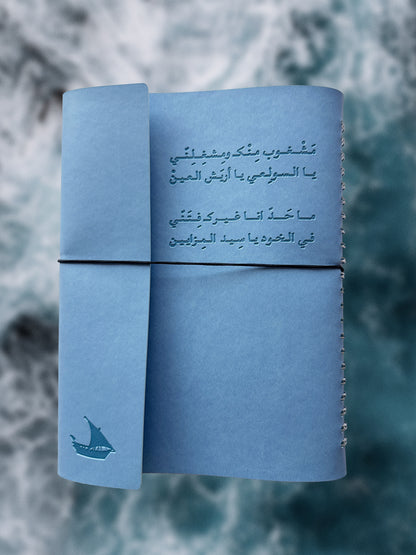 مَشْغوب مِنْك ومِشغِلِنّي
يا السولِعي يا أريَش العينْ
ما حَدّ أنا غيرك فِتَنّي
في الخوه يا سِيد المِزايين